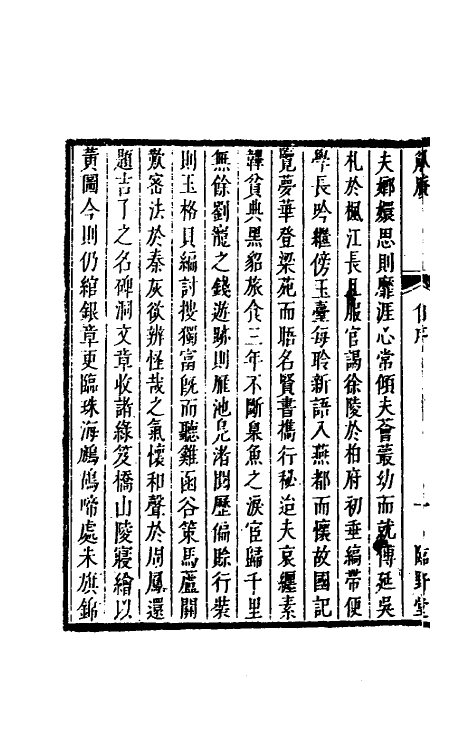 夫嫏嬛思則靡涯心常傾夫薈叢幼而就傅延吳
札於楓江長且服官謁徐陵於柏府初垂縞帶便
學長吟繼傍玉臺每聆新語入燕都而懷故國記
覽夢華登梁苑而晤名賢書攜行秘迨夫哀纏素
韠貧典黑貂旅食三年不斷皋魚之淚宦歸千里
無餘劉寵之錢遊跡則雁池鳧渚閱歷偏賒行裝
則玉格貝編討搜獨富旣而聽雞函谷策馬蘆關
欻審法於秦灰欲辨怪哉之氣懷和聲於周鳳還
題吉了之名碑洞文章收諸綠笈橋山陵寢繪以
黃圖今則仍綰銀章更臨珠海鷓鴣啼處朱旗錦
序
一
臨野堂